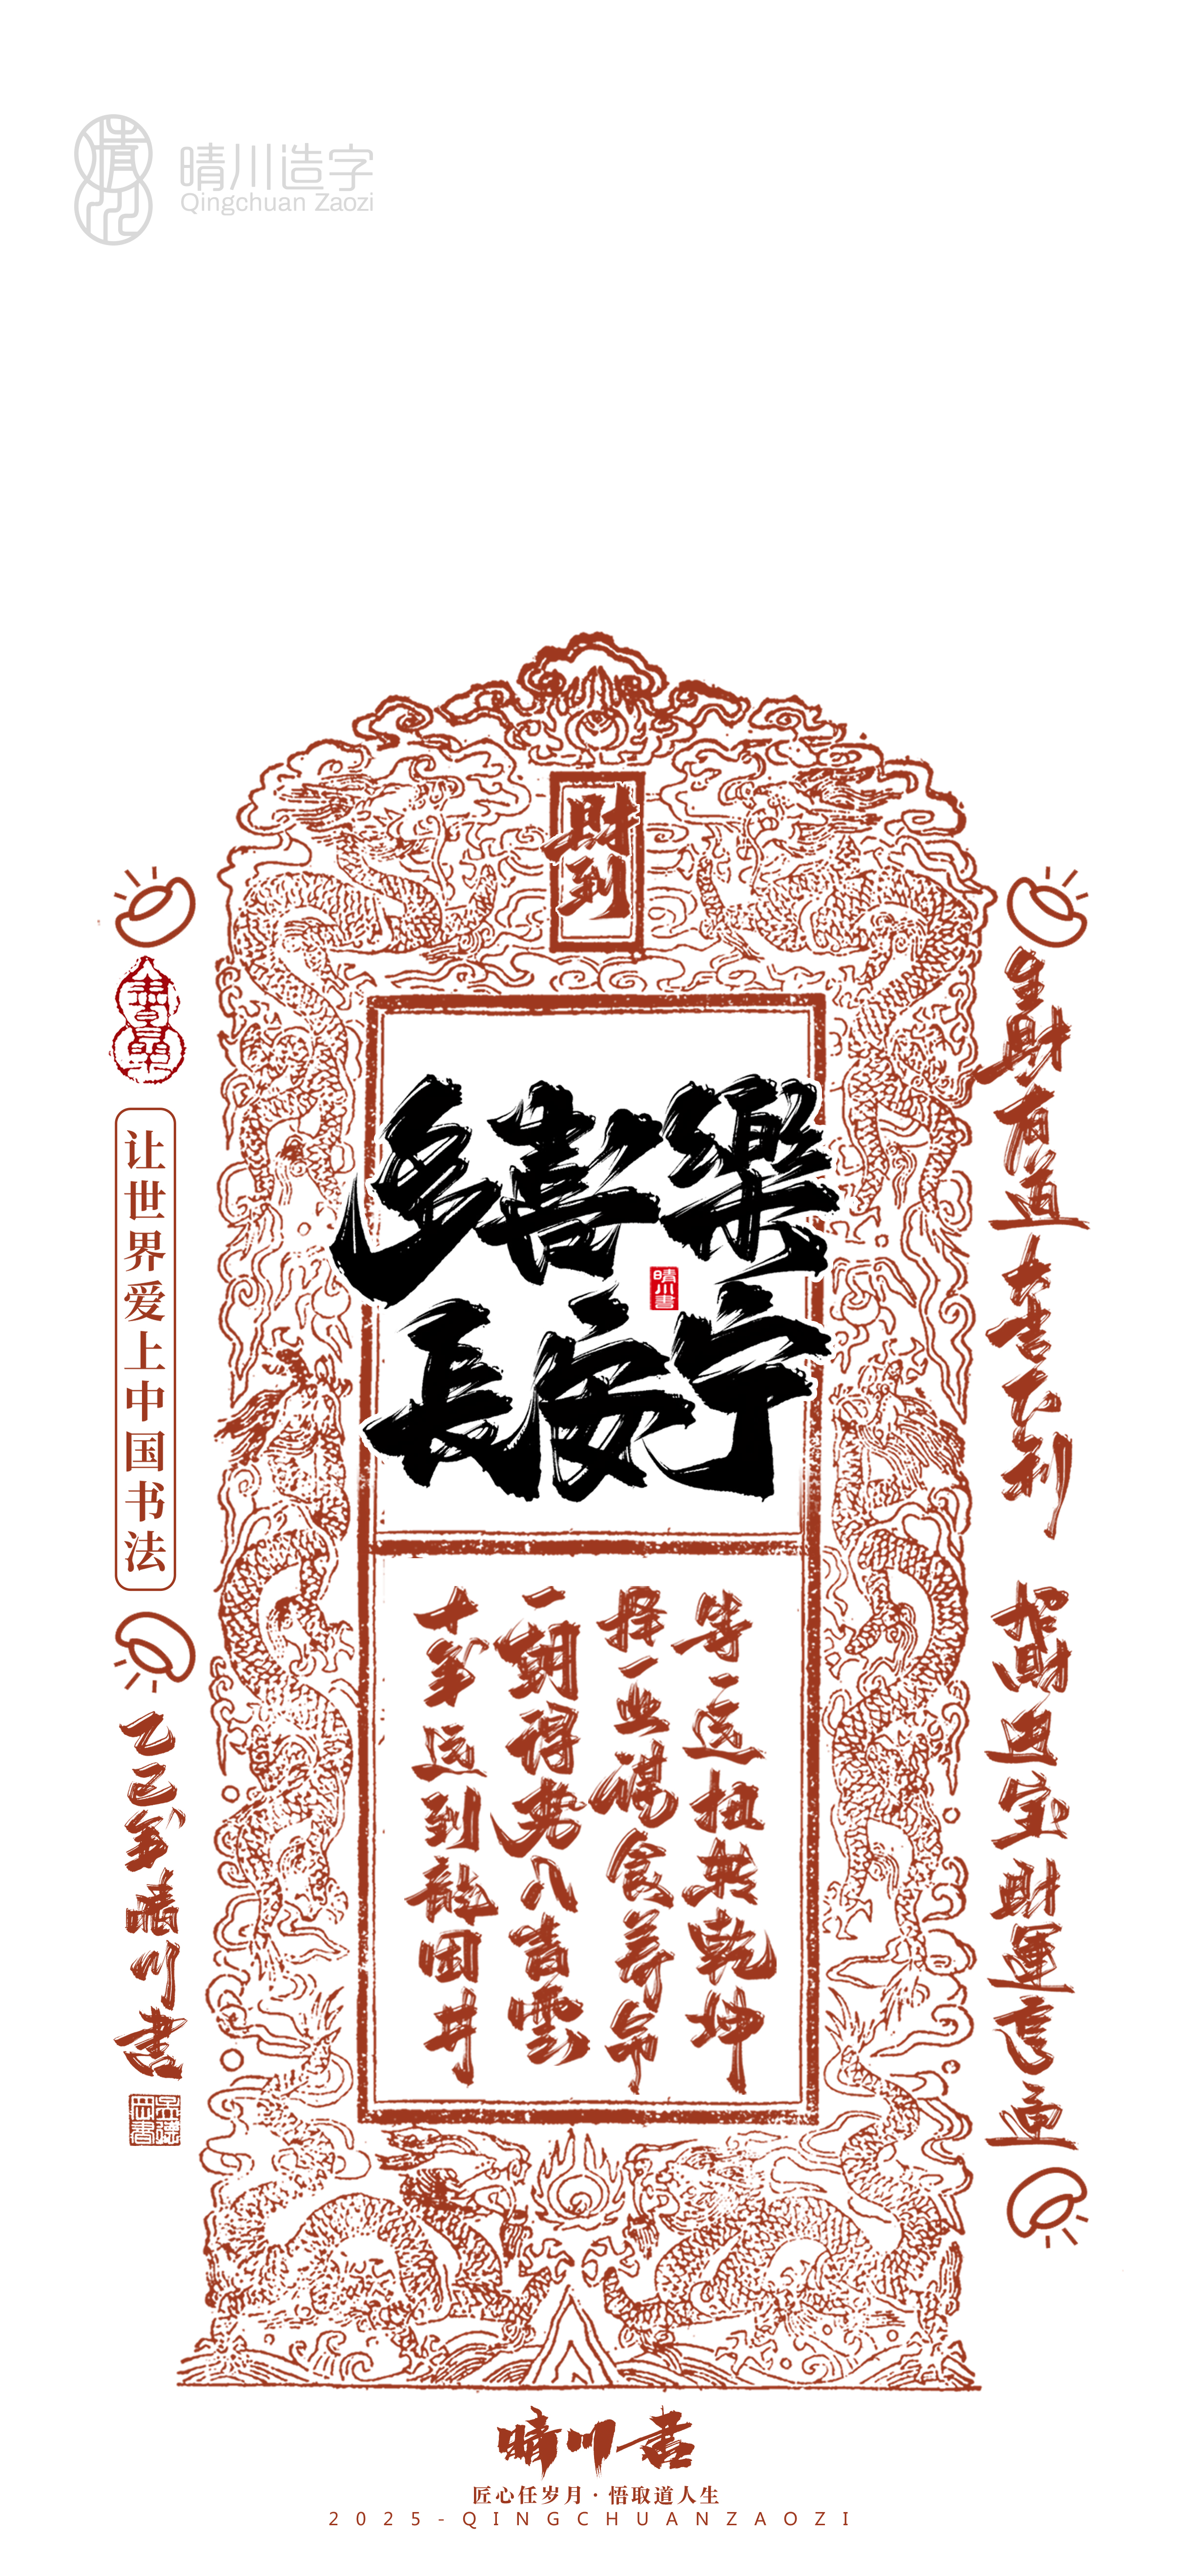 晴川造字
Qingchuan Zaozi
財到
多喜樂
長安宁
晴川書
十年运到龍困井
一朝得势入青雲
择一业谋食养命
等一运扭转乾坤
生財有道大吉大利
招財进宝財運亨通
让世界爱上中国书法
乙巳年晴川書
晴川書
匠心任岁月·悟取道人生
2025-QINGCHUANZAOZI